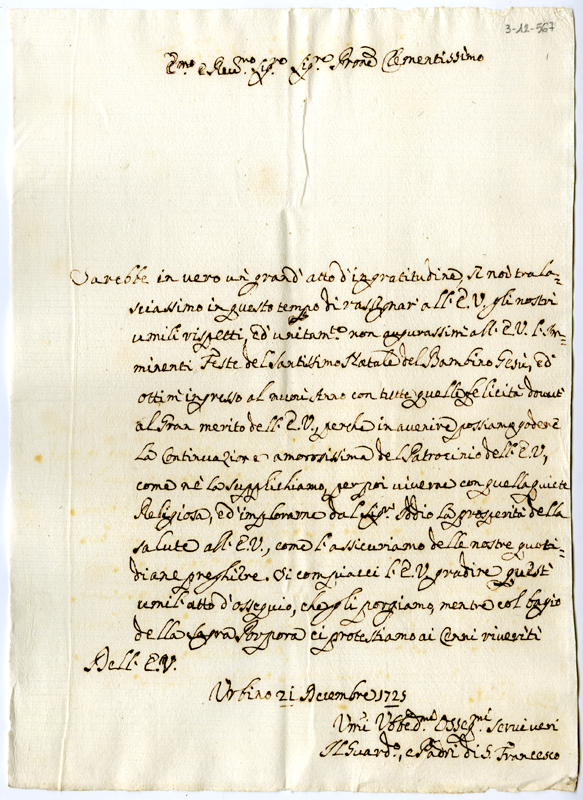 3-12-567
Emo e Revmo Sigre Sigre Prone Clementissimo
Sarebbe in vero un' grand' atto d'ingratitudine, se noi trala=
sciassimo in questo tempo di rassegnar' all' E.V. gli nostri
umili rispetti, ed' unitamte non augurassimi all' E.V. l' Im=
minenti Feste del Santissimo Natale del Bambino Gesù, ed'
ottim' ingresso al nuovi Anno con tutte quelle felicità dovute
al Gran merito dell' E.V., perche in avenire possiamo godere
la Continuazione amorosissima del Patrocinio dell' E.V,
come nè la supplichiamo, per poi viverne con quella quiete
Religiosa, ed' implorarne dal Sigre Iddio la prosperità della
salute all' E.V., come l' assicuriamo delle nostre quoti=
diane preghiere. Si compiacci l' E.V. gradire quest'
umil' atto d'ossequio, che gli porgiamo, mentre col bagio
della Sagra Porpora ci protestiamo ai Cenni riveriti
Dell' E.V.
Urbino 21 Decembre 1725
Umi Ubbedmi Ossegmi Servi veri
Il Guardo, e Padri di S. Francesco